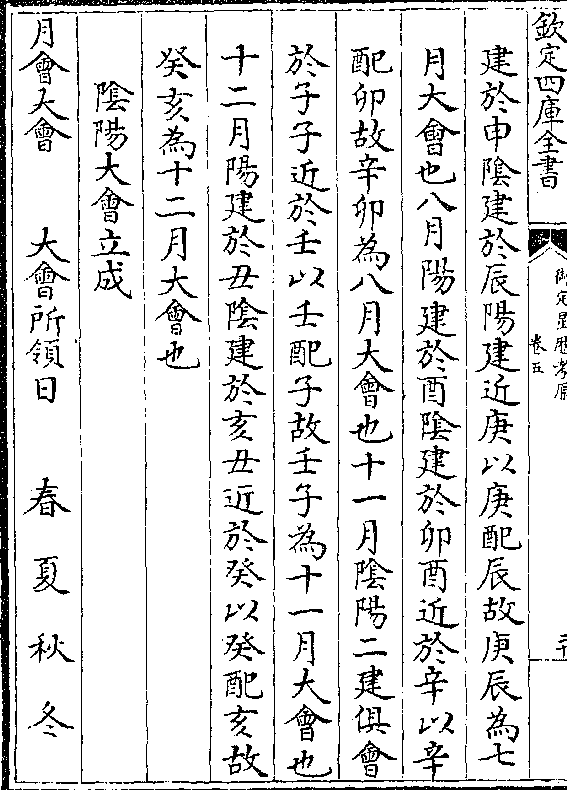 欽定四庫全書
御定星歷考原
卷五
建於申陰建於辰陽建近庚以庚配辰故庚辰為七
月大會也八月陽建於酉陰建於卯酉近於辛以辛
配卯故辛卯為八月大會也十一月陰陽二建俱會
於子子近於壬以壬配子故壬子為十一月大會也
十二月陽建於丑陰建於亥丑近於癸以癸配亥故
癸亥為十二月大會也
陰陽大會立成
月會大會 大會所領日 春 夏 秋 冬